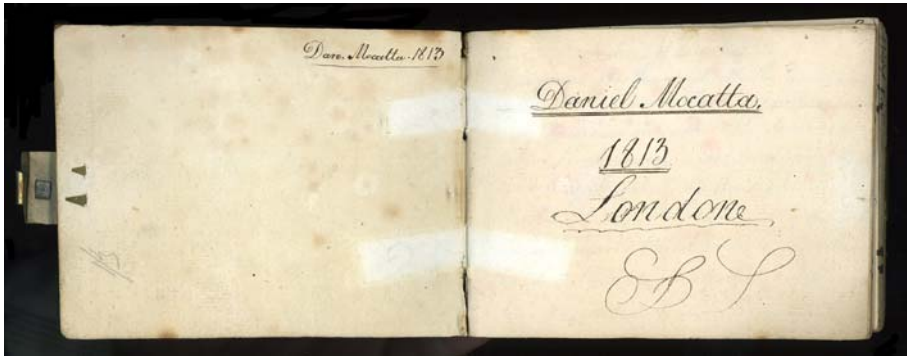 Dan. Mocatta. 1813
Daniel Mocatta.
1813
London